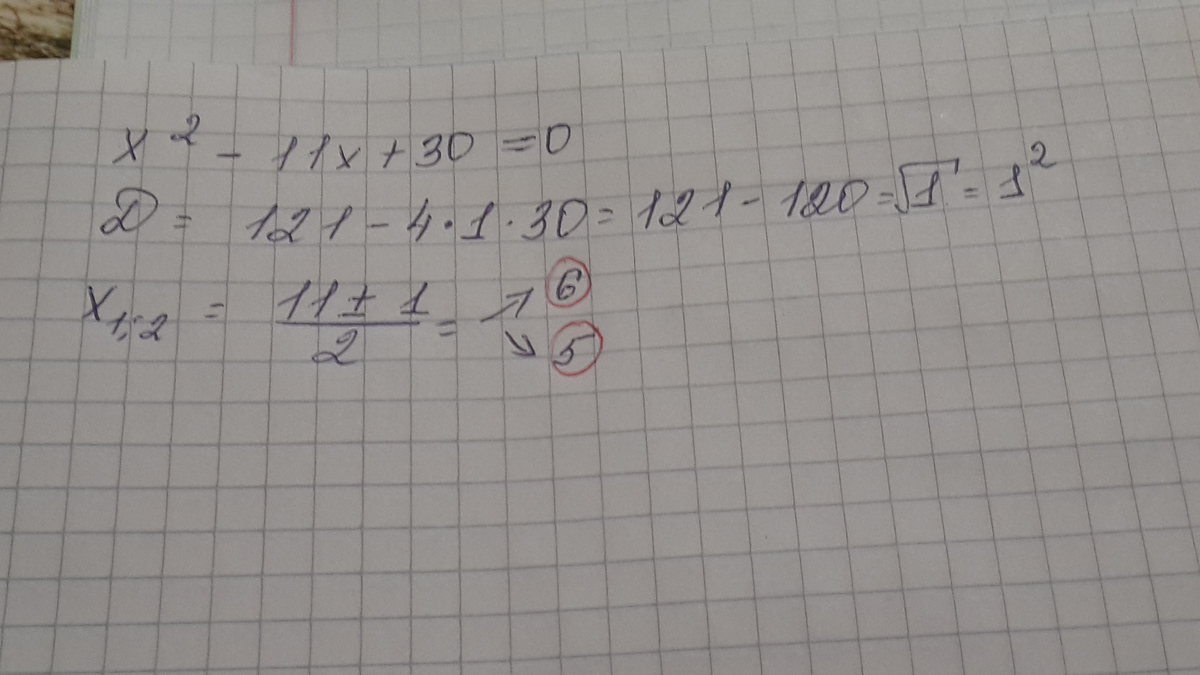 x² - 11x + 30 = 0
D = 121 - 4 · 1 · 30 = 121 - 120 = √1 = 1²
x₁,₂ = (11 ± 1)/2 = ↗ 6 ↘ 5